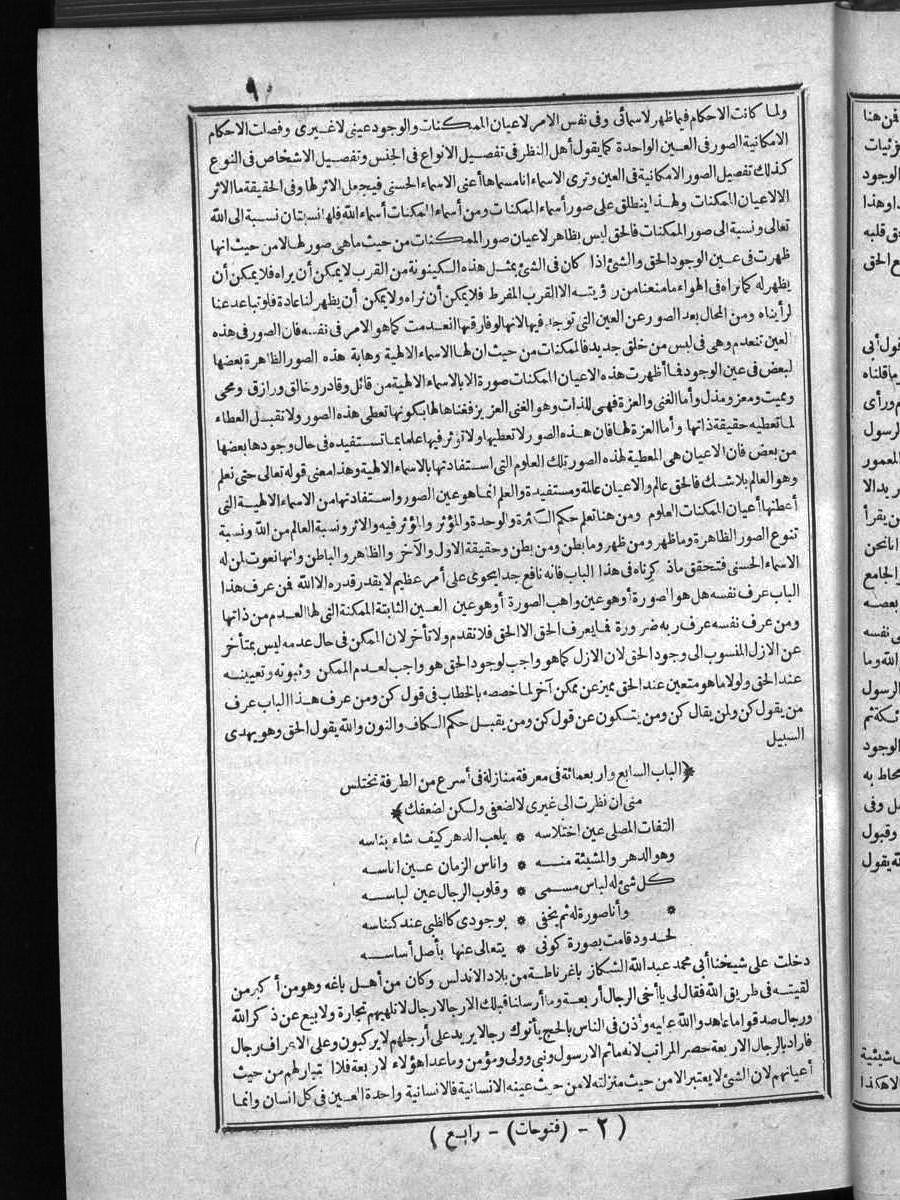 ٩
ولما كانت الاحكام فيما ظهر لاسمائى وفى نفس الامر لاعيان الممكنات والوجود عينى لا غيرى وفصلت الاحكام
الامكانية الصور فى العين الواحدة كما يقول أهل النظر فى تفصيل الانواع فى الجنس وتفصيل الاشخاص فى النوع
كذلك تفصيل الصور الامكانية فى العين وترى الاسماء انا مسماها أعنى الاسماء الحسنى فيجعل الاثر لها وفى الحقيقة ما الاثر
الا لاعيان الممكنات ولهذا ينطلق على صور أسماء الممكنات ومن أسماء الممكنات أسماء الله فلها نسبتان نسبة الى الله
تعالى ونسبة الى صور الممكنات فالحق ليس بظاهر لاعيان صور الممكنات من حيث ما هى صور لها لا من حيث انها
ظهرت فى عين الوجود الحق والشئ اذا كان فى الشئ بمثل هذه الكينونة من القرب لا يمكن أن يراه فلا يمكن أن
يظهر له كما نراه فى الهواء ما منعنا من رؤيته الا القرب المفرط فلا يمكن أن نراه ولا يمكن أن يظهر لنا عادة فلو تباعد عنا
لرأيناه ومن المحال بعد الصور عن العين التى توجد فيها لانها لو فارقتها انعدمت كما هو الامر فى نفسه فان الصور فى هذه
العين تنعدم وهى فى لبس من خلق جديد فالممكنات من حيث ان لها الاسماء الالهية وهابة هذه الصور الظاهرة بعضها
لبعض فى عين الوجود فما أظهرت هذه الاعيان الممكنات صورة الا بالاسماء الالهية من قائل وقادر وخالق ورازق ومحى
ومميت ومعز ومذل وأما الغنى والعزة فهى للذات وهو الغنى العزيز فغناها لها بكونها تعطى هذه الصور ولا تقبل العطاء
لما تعطيه حقيقة ذاتها وأما العزة لها فان هذه الصور لا تعطيها ولا تؤثر فيها علما بما تستفيده فى حال وجودها بعضها
من بعض فان الاعيان هى المعطية لهذه الصور تلك العلوم التى استفادتها بالاسماء الالهية وهذا معنى قوله تعالى حتى نعلم
وهو العالم بلا شك فالحق عالم والاعيان عالمة ومستفيدة والعلم انما هو عين الصور واستفادتها من الاسماء الالهية التى
أعطتها أعيان الممكنات العلوم ومن هنا تعلم حكم الكثرة والوحدة والمؤثر والمؤثر فيه والاثر ونسبة العالم من الله ونسبة
تنوع الصور الظاهرة وما ظهر ومن ظهر وما بطن ومن بطن وحقيقة الاول والآخر والظاهر والباطن وانها نعوت لمن له
الاسماء الحسنى فتحقق ما ذكرناه فى هذا الباب فانه نافع جدا يحوى على أمر عظيم لا يقدر قدره الا الله فمن عرف هذا
الباب عرف نفسه هل هو الصورة أو هو عين واهب الصورة أو هو عين العين الثابتة الممكنة التى لها العدم من ذاتها
ومن عرف نفسه عرف ربه ضرورة فما يعرف الحق الا الحق فلا تقدم ولا تأخر لان الممكن فى حال عدمه ليس بمتأخر
عن الازل المنسوب الى وجود الحق لان الازل كما هو واجب لوجود الحق هو واجب لعدم الممكن وثبوته وتعيينه
عند الحق ولولا ما هو متعين عند الحق مميز عن ممكن آخر لما خصصه بالخطاب فى قول كن ومن عرف هذا الباب عرف
من يقول كن ولمن يقال كن ومن يتكون عن قول كن ومن يقبل حكم الكاف والنون والله يقول الحق وهو يهدى
السبيل
﴿الباب السابع وأربعمائة فى معرفة منازلة فى أسرع من الطرفة تختلس
منى ان نظرت الى غيرى لا لضعفى ولكن لضعفك﴾
التفات المصلى عين اختلاسه * يلعب الدهر كيف شاء بناسه
وهو الدهر والمشيئة منه * واناس الزمان عين اناسه
كل شئ له لباس مسمى * وقلوب الرجال عين لباسه
* وأنا صورة له ثم يخفى * بوجودى كالظبى عند كناسه
لحدود قامت بصورة كونى * يتعالى عنها بأصل أساسه
دخلت على شيخنا أبى محمد عبد الله الشكاز باغرناطة من بلاد الاندلس وكان من أهل باغه وهو من أكبر من
لقيته فى طريق الله فقال لى يا أخى الرجال أربعة وما أرسلنا قبلك الا رجالا رجال لا تلهيهم تجارة ولا بيع عن ذكر الله
ورجال صدقوا ما عاهدوا الله عليه وأذن فى الناس بالحج يأتوك رجالا يريد على أرجلهم لا يركبون وعلى الاعراف رجال
فاراد بالرجال الاربعة حصر المراتب لانه ما ثم الا رسول ونبى وولى ومؤمن وما عدا هؤلاء الاربعة فلا اعتبار لهم من حيث
أعيانهم لان الشئ لا يعتبر الا من حيث منزلته لا من حيث عينه الانسانية فالانسانية واحدة العين فى كل انسان وانما
(٢ - (فتوحات) - رابع)